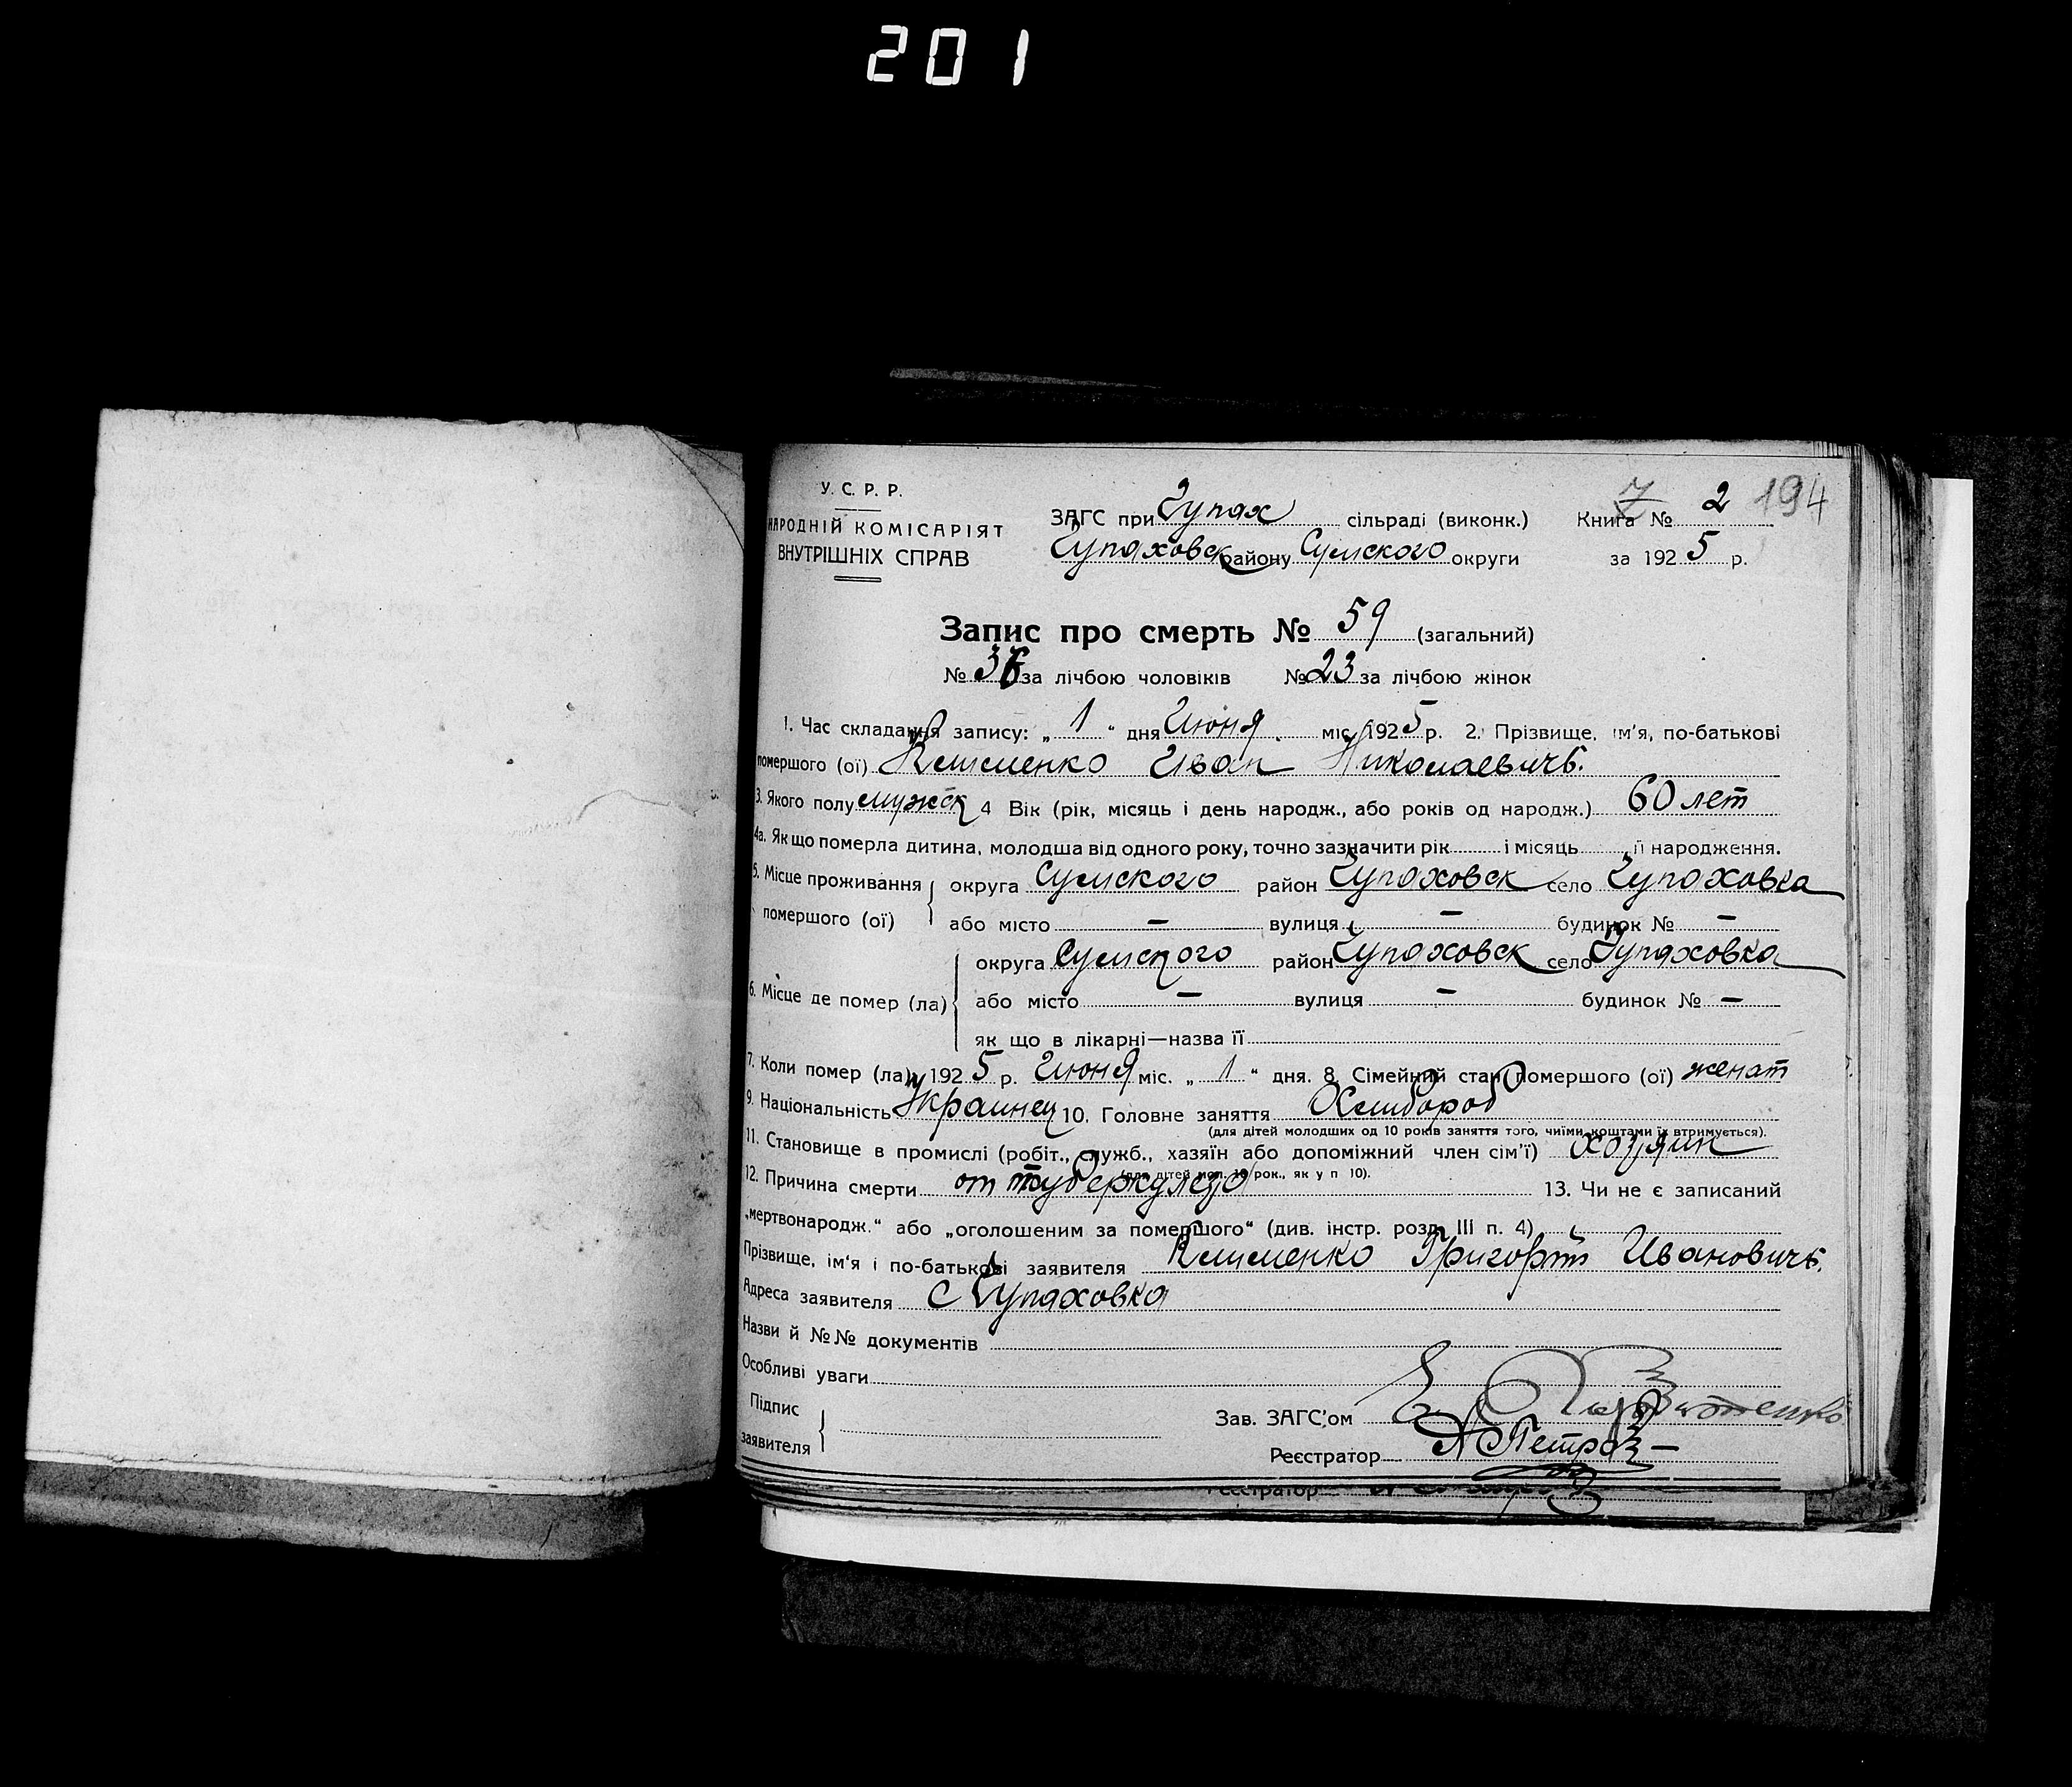 201
У. С. Р. Р.
НАРОДНІЙ КОМІСАРІЯТ
ВНУТРІШНІХ СПРАВ
ЗАГС при Чупах сільраді (виконк.)
Чупаховск району Сумского округи
Книга № 2 194
за 1925 р.
Запис про смерть № 59 (загальний)
№ 36 за лічбою чоловіків № 23 за лічбою жінок
1. Час складання запису: „ 1 “ дня Июня міс. 1925 р. 2. Прізвище, ім'я, по-батькові
помершого (ої) Клименко Иван Николаевичъ.
3. Якого полу мужск 4 Вік (рік, місяць і день народж., або років од народж.) 60 лет
4а. Як що померла дитина, молодша від одного року, точно зазначити рік і місяць її народження.
5. Місце проживання помершого (ої) округа Сумского район Чупаховск село Чупаховка
або місто — вулиця — будинок № —
6. Місце де помер (ла) округа Сумского район Чупаховск село Чупаховка
або місто — вулиця — будинок № —
як що в лікарні—назва її
7. Коли помер (ла) 1925 р. Июня міс. „ 1 “ дня. 8. Сімейний стан помершого (ої) женат
9. Національність Украинец 10. Головне заняття Хлибороб
(для дітей молодших од 10 років заняття того, чиїми коштами їх втримується).
11. Становище в промислі (робіт., служб., хазяїн або допоміжний член сім'ї) хозяин
(для дітей мол. 10 рок., як у п 10).
12. Причина смерти от туберкулеза 13. Чи не є записаний
„мертвонародж.“ або „оголошеним за помершого“ (див. інстр. розд. III п. 4)
Прізвище, ім'я і по-батькові заявителя Клименко Григорій Ивановичъ.
Адреса заявителя с Чупаховка
Назви й №№ документів
Особливі уваги
Підпис заявителя
Зав. ЗАГС'ом
Реєстратор А Петров
Реєстратор